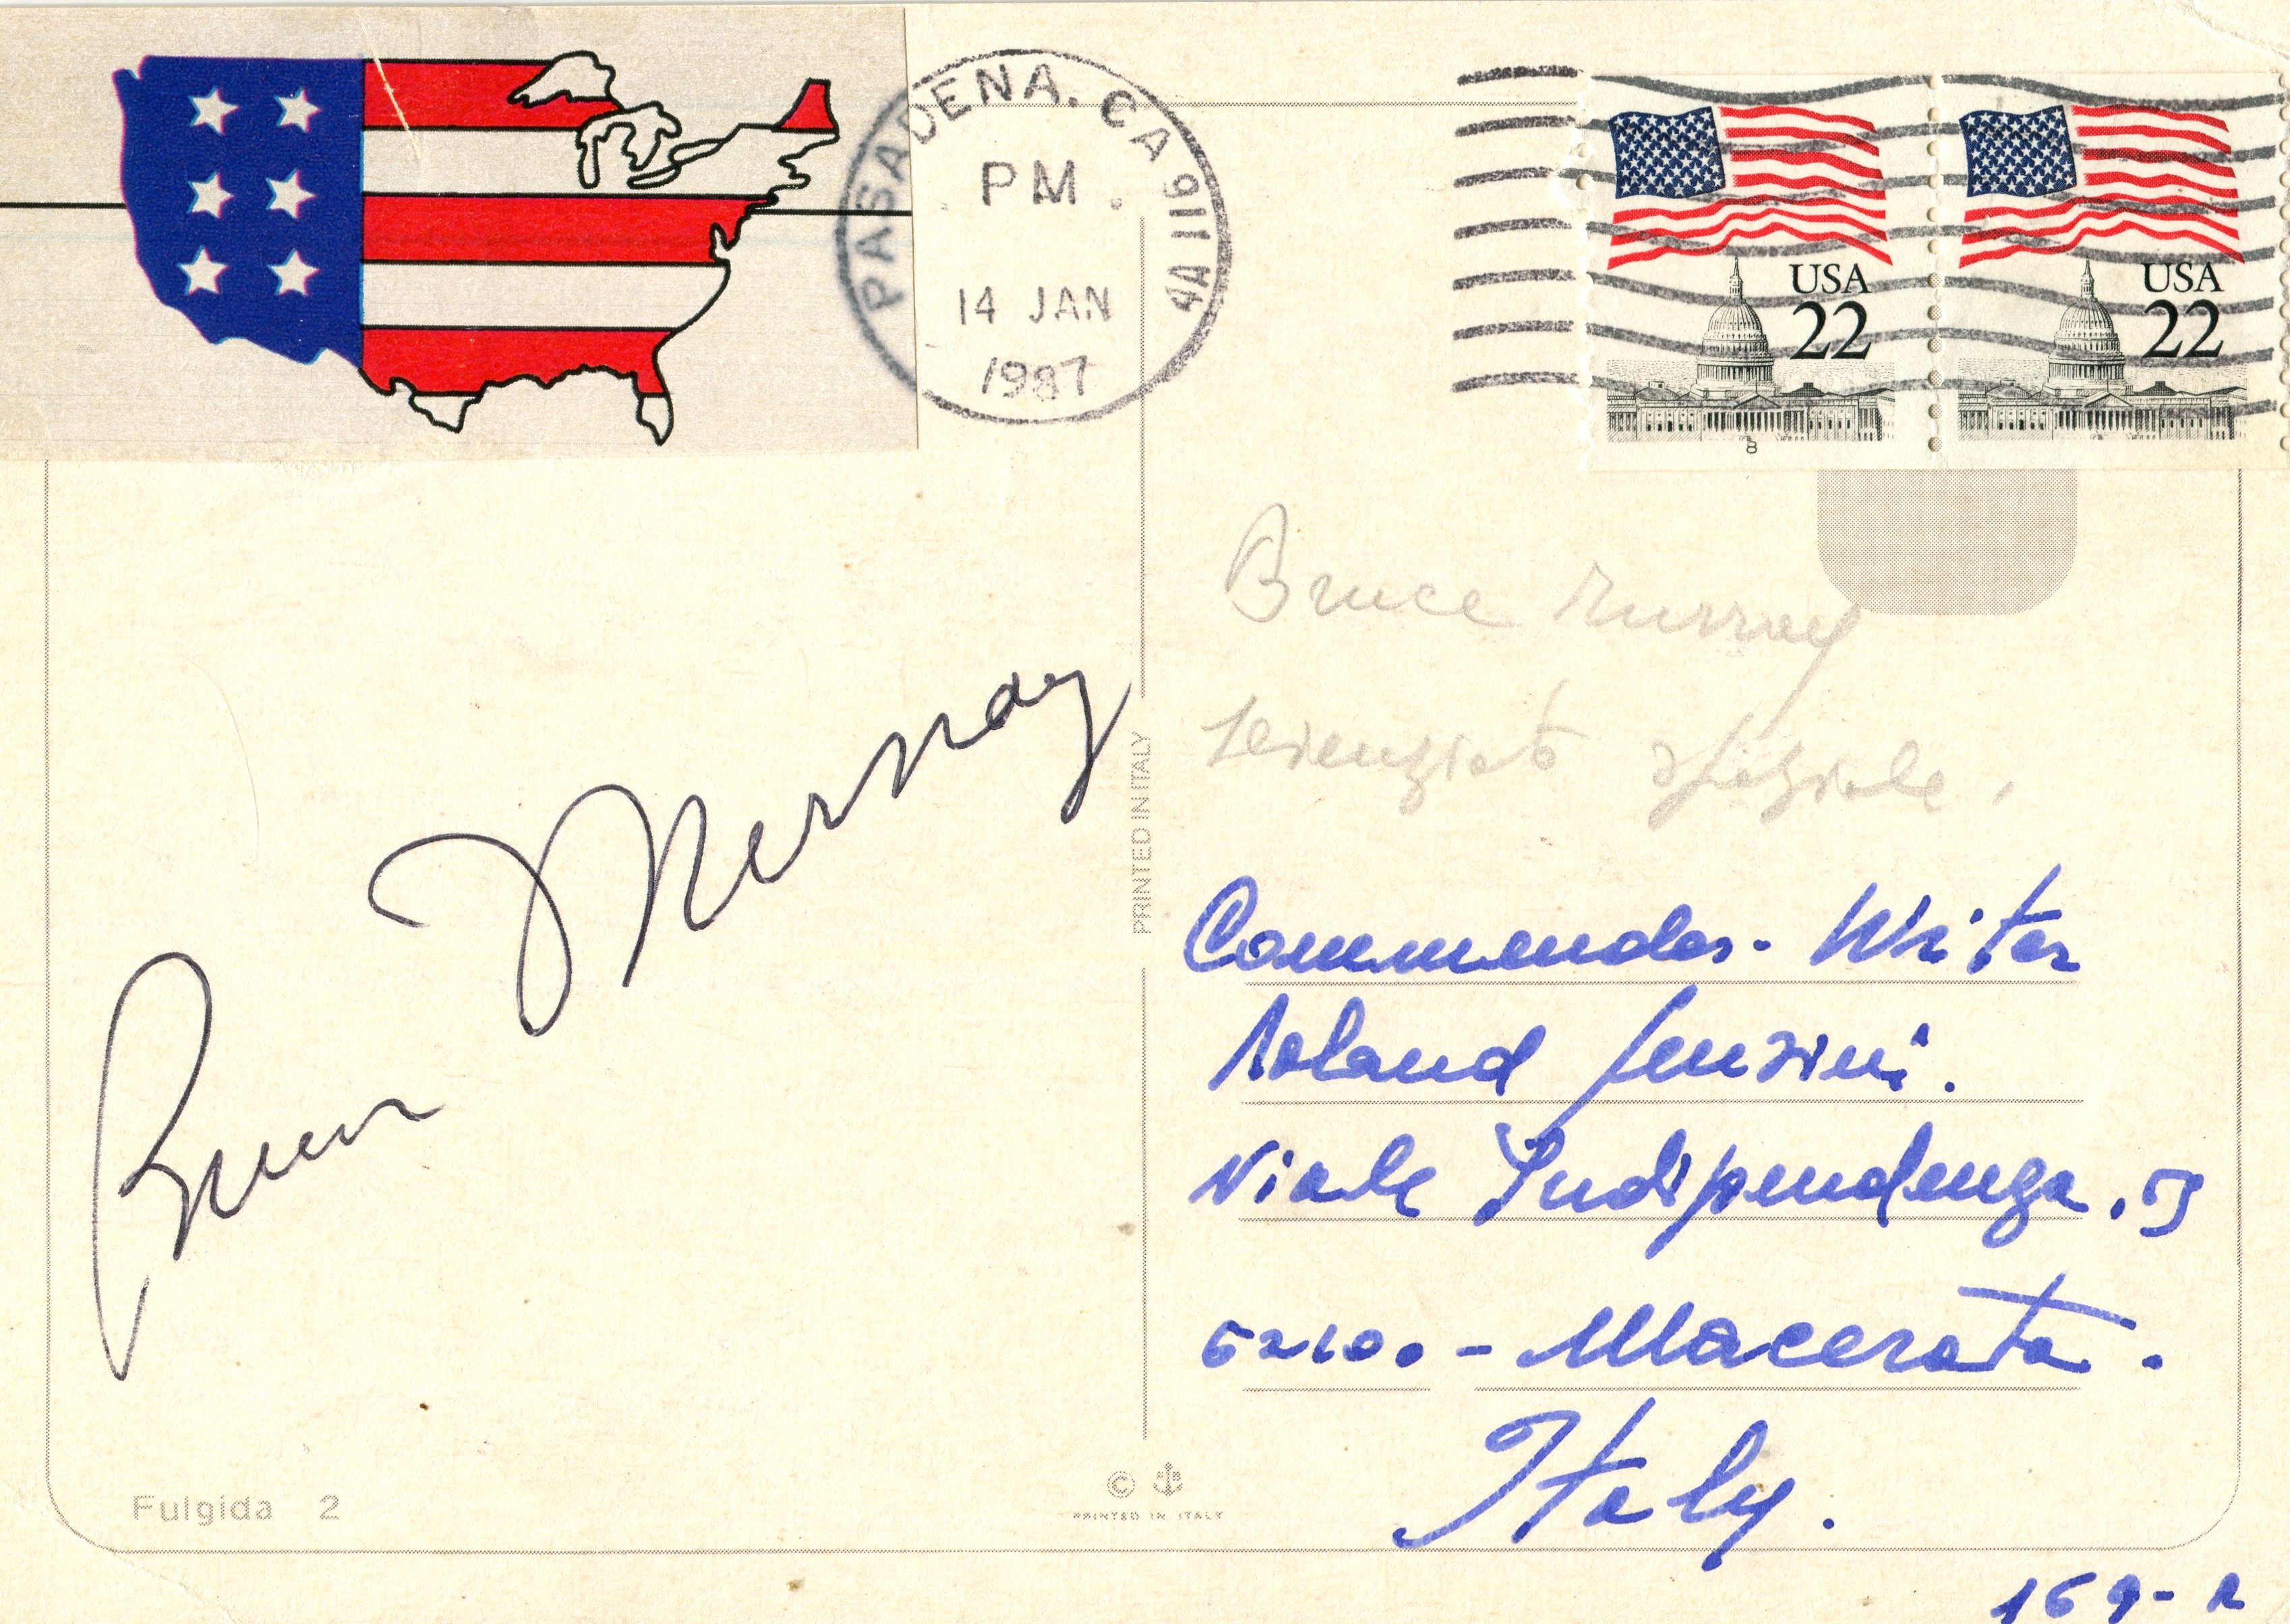 PASADENA, CA 911
PM
14 JAN
1987
USA
22
8
USA
22
Bruce Murray
scienziato spaziale.
Bruce Murray
PRINTED IN ITALY
Commendar- Writer
Roland
Viale Indipendenza,
62100 - Macerata.
Italy.
Fulgida 2
©
PRINTED IN ITALY
169-